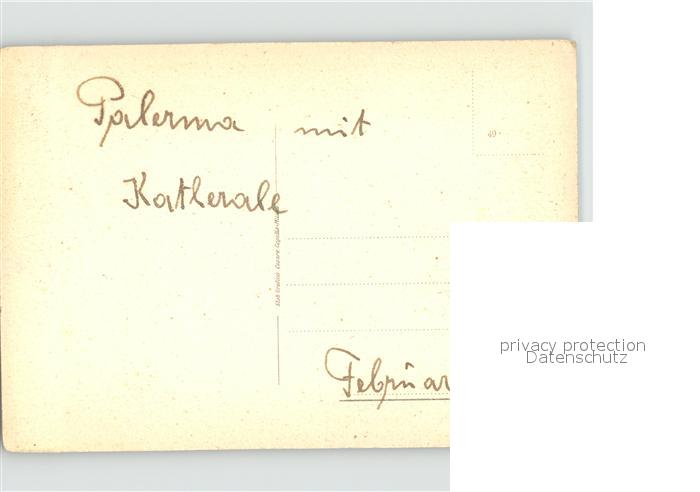 Palerma mit
49
Katherale
Februar
privacy protection
Datenschutz